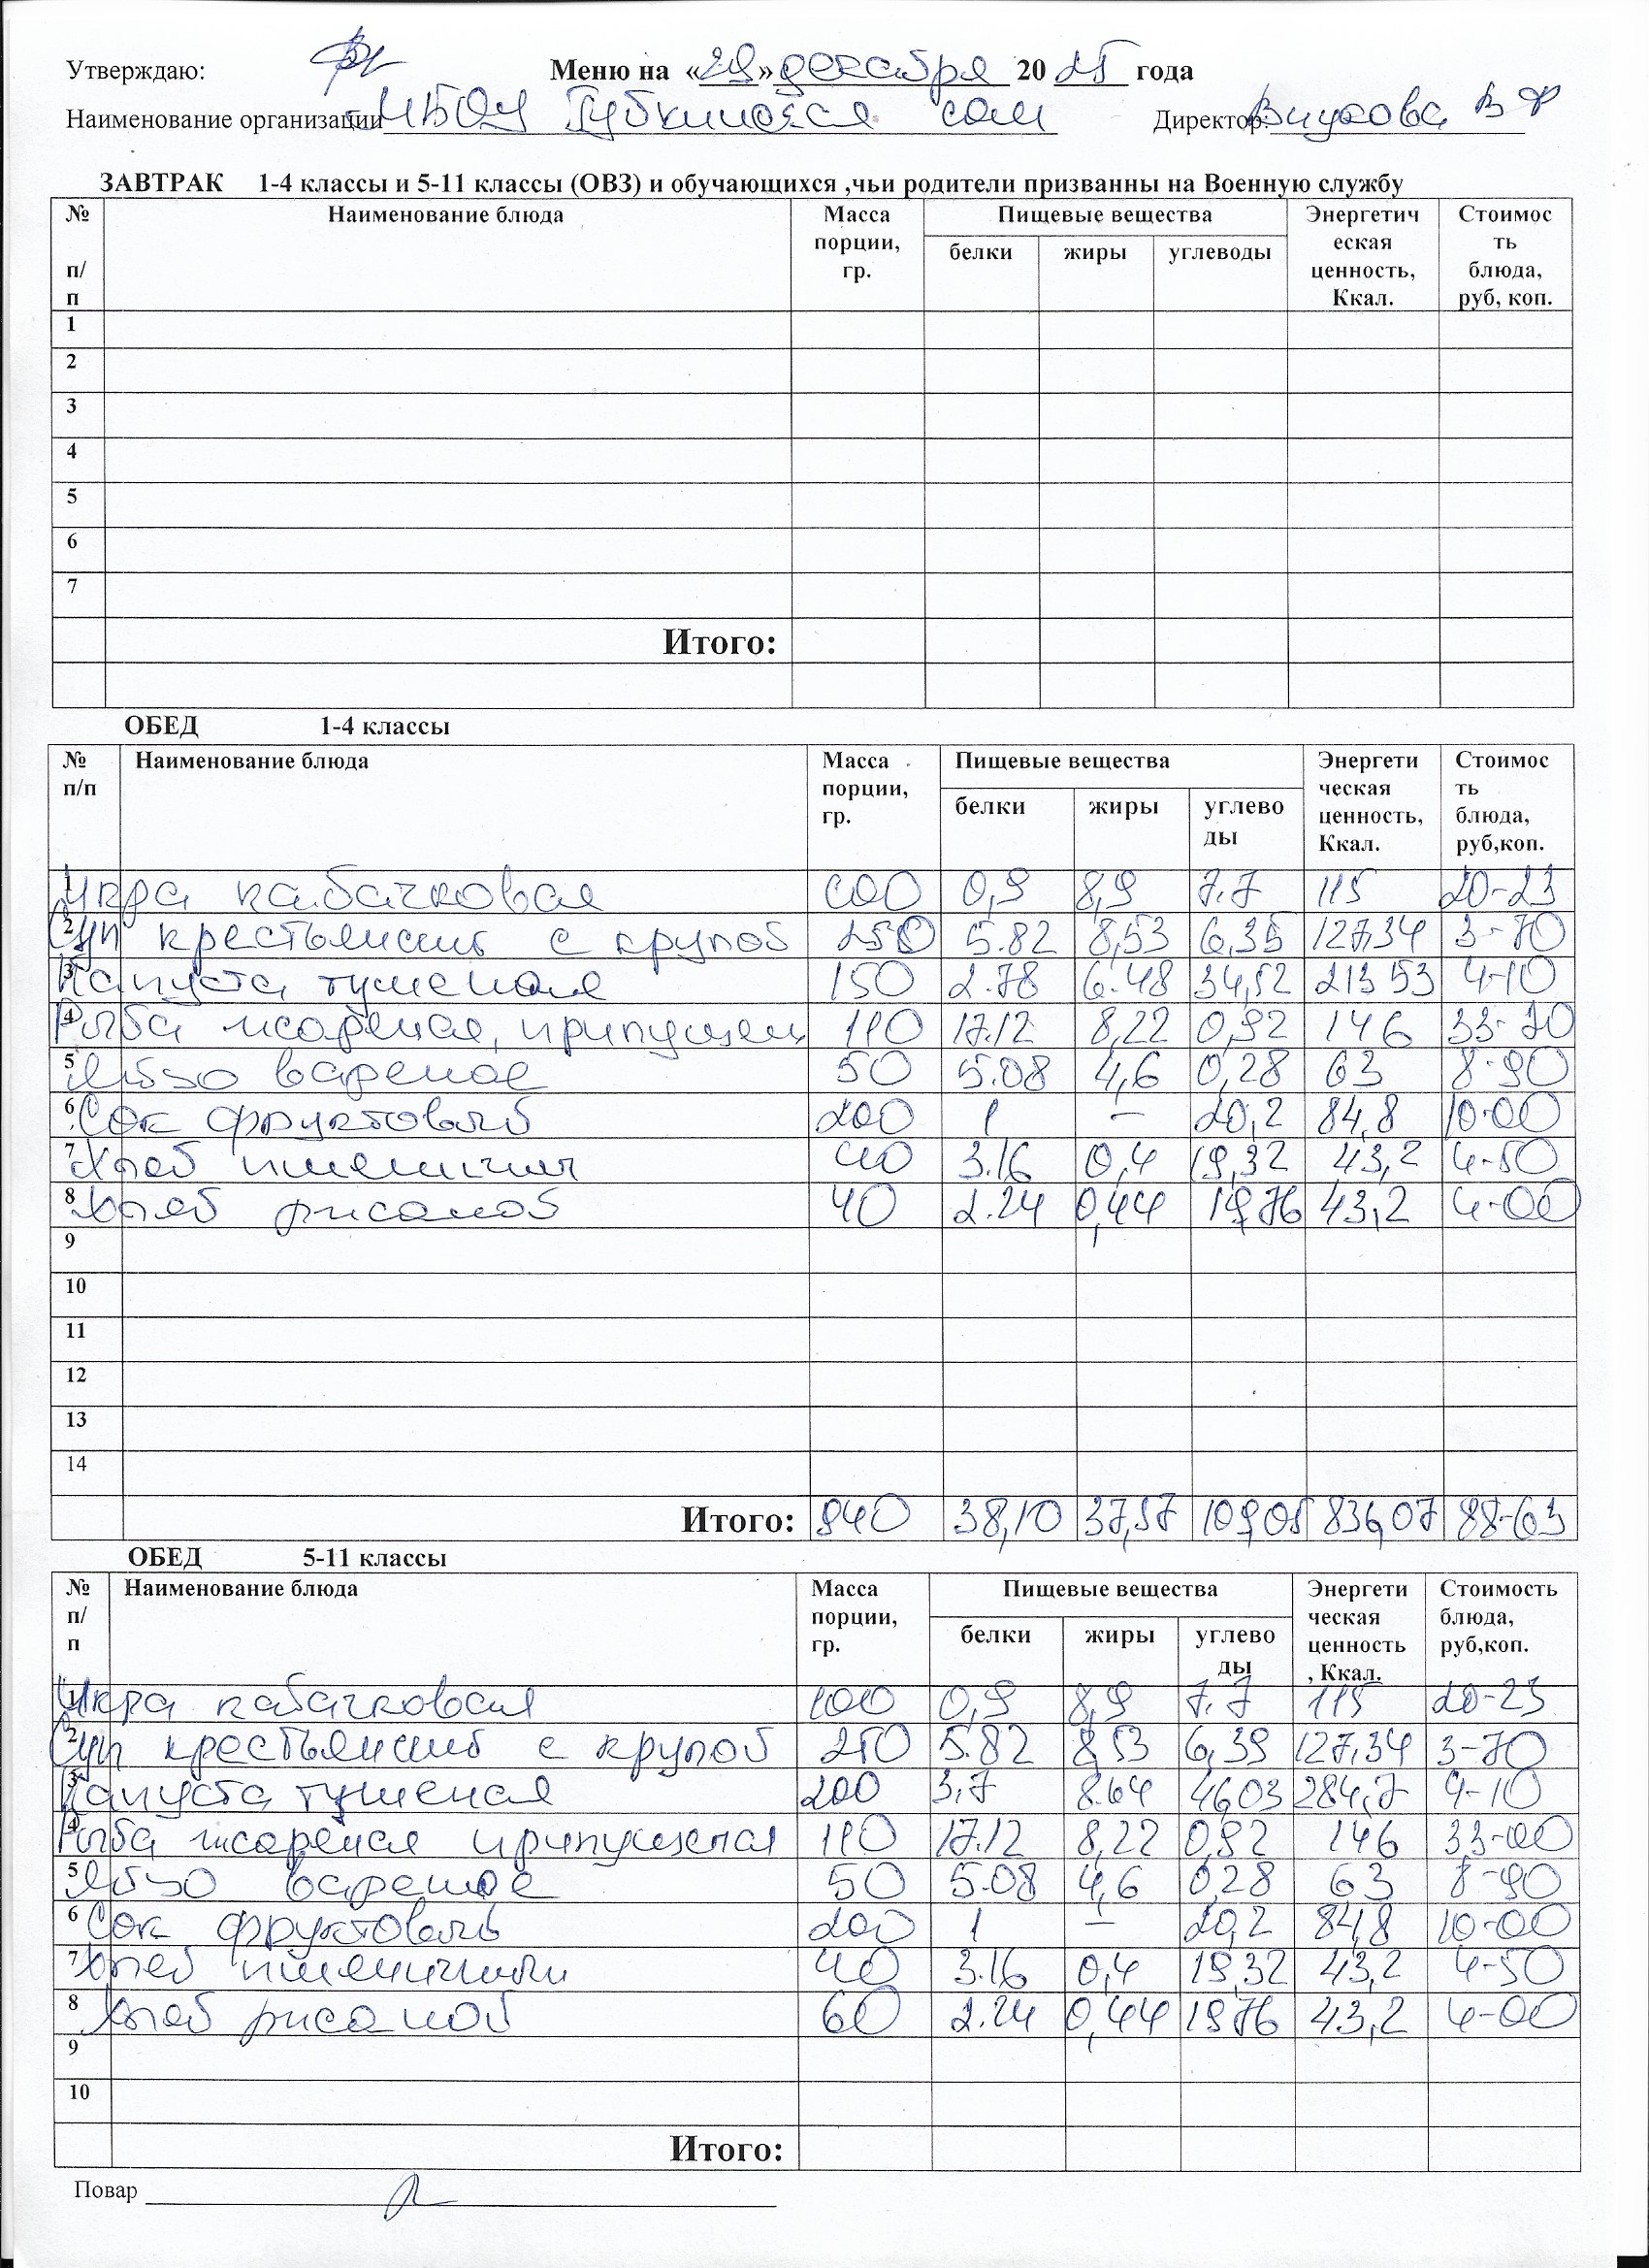 Утверждаю: Меню на «29» декабря 2025 года
Наименование организации МБОУ Губкинская сош Директор:
ЗАВТРАК 1-4 классы и 5-11 классы (ОВЗ) и обучающихся ,чьи родители призванны на Военную службу
№ п/п Наименование блюда Масса порции, гр. Пищевые вещества Энергетическая ценность, Ккал. Стоимость блюда, руб, коп.
белки жиры углеводы
1
2
3
4
5
6
7
Итого:
ОБЕД 1-4 классы
№ п/п Наименование блюда Масса порции, гр. Пищевые вещества Энергетическая ценность, Ккал. Стоимость блюда, руб,коп.
белки жиры углеводы
1 Икра кабачковая 100 0,9 8,9 7.7 115 20-23
2 Суп крестьянский с крупой 250 5.82 8,53 6,35 127,34 3-70
3 Капуста тушеная 150 2.78 6.48 34,52 213 53 4-10
4 Рыба жареная, припущен 110 17.12 8,22 0,92 146 33-70
5 Яйцо вареное 50 5.08 4,6 0,28 63 8-90
6 Сок фруктовый 200 1 – 20,2 84,8 10-00
7 Хлеб пшеничн 40 3.16 0,4 19,32 43,2 4-50
8 Хлеб ржаной 40 2.24 0,44 19,76 43,2 4-00
9
10
11
12
13
14
Итого: 940 38,10 37,57 109,05 836,07 88-63
ОБЕД 5-11 классы
№ п/п Наименование блюда Масса порции, гр. Пищевые вещества Энергетическая ценность, Ккал. Стоимость блюда, руб,коп.
белки жиры углеводы
1 Икра кабачковая 100 0,9 8,9 7.7 115 20-23
2 Суп крестьянский с крупой 250 5.82 8,53 6,39 127,34 3-70
3 Капуста тушеная 200 3,7 8.64 46,03 284,7 4-10
4 Рыба жареная припущеная 110 17.12 8,22 0,92 146 33-00
5 Яйцо вареное 50 5.08 4,6 0,28 63 8-90
6 Сок фруктовый 200 1 – 20,2 84,8 10-00
7 Хлеб пшеничный 40 3.16 0,4 19,32 43,2 4-50
8 Хлеб ржаной 60 2.24 0,44 19,76 43,2 4-00
9
10
Итого:
Повар